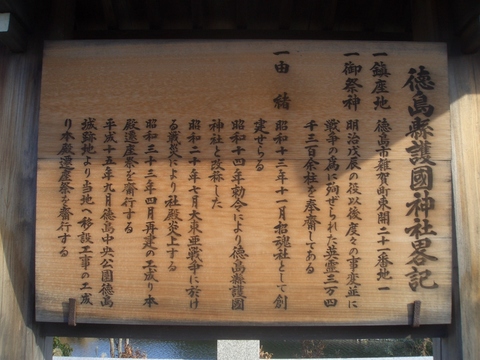 徳島縣護國神社畧記
一鎮座地 徳島市雑賀町東開二十一番地一
一御祭神 明治戊辰の役以後度々の事変並に
戦争の為に殉ぜられた英霊三万四
千三百余柱を奉斎してある
一由緒 昭和十三年十一月招魂社として創
建せらる
昭和十四年勅令により徳島縣護國
神社と改称した
昭和二十年七月大東亜戦争に於け
る戦災により社殿炎上する
昭和三十三年四月再建の工成り本
殿遷座祭を齋行する
平成十五年九月徳島中央公園徳島
城跡地より当地へ移設工事の工成
り本殿遷座祭を齋行する